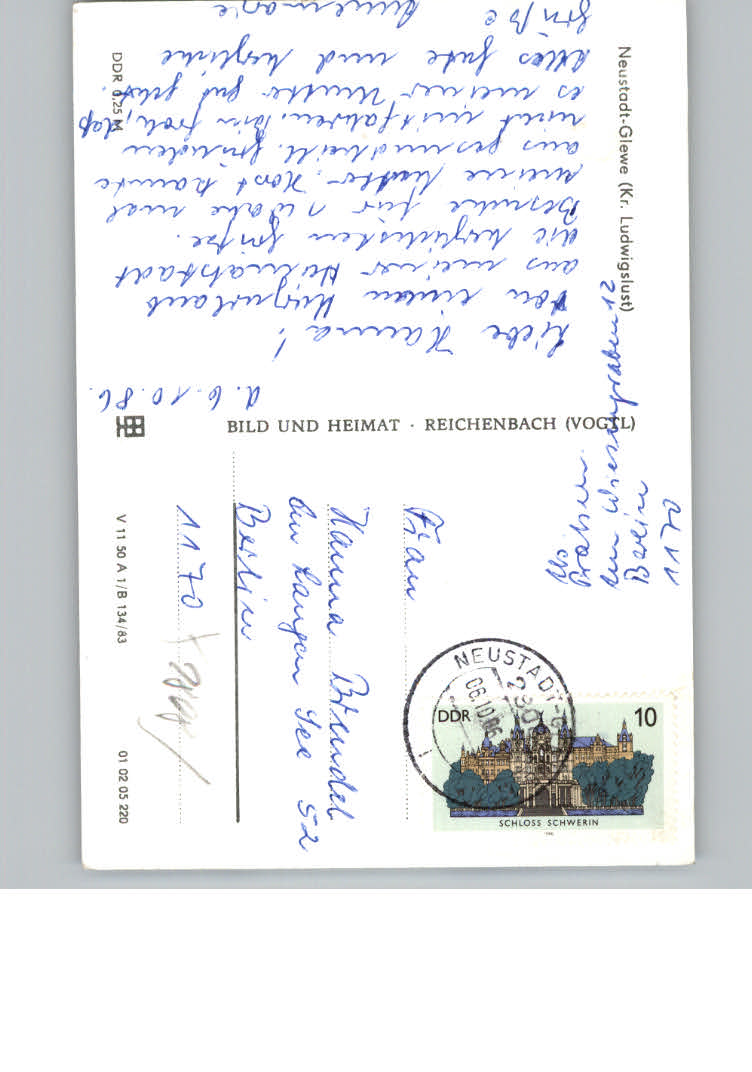 Neustadt-Glewe (Kr. Ludwigslust)
d. 6.10.86.
Liebe Hanna!
Von einem Kurzurlaub
aus meiner Heimatstadt
die herzlichsten Grüße.
Besuche für 1 Woche mal
meine Mutter. Horst konnte
aus gesundheitl. Gründen
nicht mitfahren. Bin froh, daß
es meiner Mutter gut geht.
Alles Gute und herzliche
Grüße Annemarie
DDR 0,25 M
BILD UND HEIMAT · REICHENBACH (VOGTL)
V 11 50 A 1/B 134/83
01 02 05 220
Abs.
Am Wiesengraben 12
Berlin
1170
Frau
Hanna Brendel
Am Langen See 52
Berlin
1170
NEUSTADT-G
290
06.10.86
DDR
10
SCHLOSS SCHWERIN